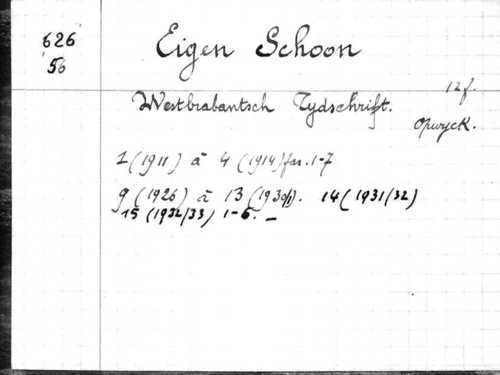 626
56
Eigen Schoon
Westbrabantsch Tydschrift.
12f.
Opwyck.
1 (1911) à 4 (1914) fas. 1-7
9 (1926) à 13 (1930). 14 (1931/32)
15 (1932/33) 1-6. -